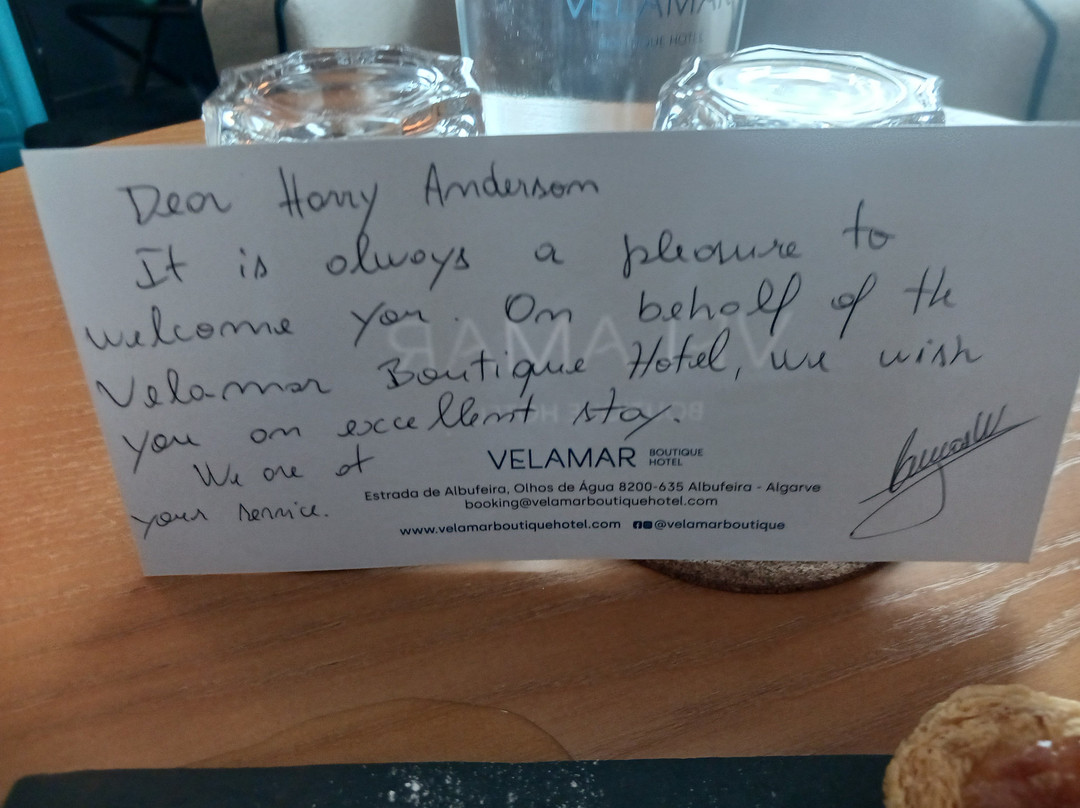 VELAMAR
BOUTIQUE HOTEL
Dear Harry Anderson
It is always a pleasure to
welcome you. On behalf of the
Velamar Boutique Hotel, we wish
you an excellent stay.
We are at
your service.
VELAMAR BOUTIQUE HOTEL
Estrada de Albufeira, Olhos de Água 8200-635 Albufeira - Algarve
booking@velamarboutiquehotel.com
www.velamarboutiquehotel.com @velamarboutique